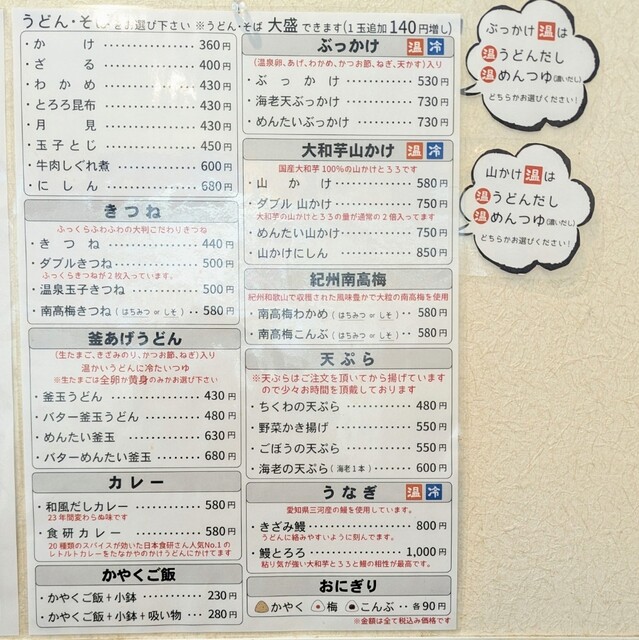 うどん・そばをお選び下さい ※うどん・そば 大盛 できます(1玉追加 140円増し)
・か け ………… 360円
・ざ る ………… 400円
・わ か め ………… 430円
・とろろ昆布 ………… 430円
・月 見 ………… 430円
・玉子とじ ………… 450円
・牛肉しぐれ煮 ………… 600円
・に し ん ………… 680円
きつね
ふっくらふわふわの大判こだわりきつね
・き つ ね ………… 440円
・ダブルきつね ………… 500円
ふっくらきつねが2枚入っています。
・温泉玉子きつね ………… 500円
・南高梅きつね(はちみつ or しそ) ‥ 580円
釜あげうどん
(生たまご、きざみのり、かつお節、ねぎ)入り
温かいうどんに冷たいつゆ
※生たまごは全卵か黄身のみかお選び下さい
・釜玉うどん ………… 430円
・バター釜玉うどん ………… 480円
・めんたい釜玉 ………… 630円
・バターめんたい釜玉 ………… 680円
カレー
・和風だしカレー ………… 580円
23年間変わらぬ味です
・食研カレー ………… 580円
20種類のスパイスが効いた日本食研さん人気No.1の
レトルトカレーをたなかやのかけうどんにかけてます
かやくご飯
・かやくご飯+小鉢 ………… 230円
・かやくご飯+小鉢+吸い物 … 280円
ぶっかけ 温 冷
(温泉卵、あげ、わかめ、かつお節、ねぎ、天かす)入り
・ぶ っ か け ………… 530円
・海老天ぶっかけ ………… 730円
・めんたいぶっかけ ………… 730円
大和芋山かけ 温 冷
国産大和芋100%の山かけとろろです
・山 か け ………… 580円
・ダブル 山かけ ………… 750円
大和芋の山かけとろろの量が通常の2倍入ってます
・めんたい山かけ ………… 750円
・山かけにしん ………… 850円
紀州南高梅
紀州和歌山で収穫された風味豊かで大粒の南高梅を使用
・南高梅わかめ(はちみつ or しそ) ‥ 580円
・南高梅こんぶ(はちみつ or しそ) ‥ 580円
天ぷら
※天ぷらはご注文を頂いてから揚げています
ので少々お時間を頂戴しております
・ちくわの天ぷら ………… 480円
・野菜かき揚げ ………… 550円
・ごぼうの天ぷら ………… 550円
・海老の天ぷら(海老1本) ………… 600円
うなぎ 温 冷
愛知県三河産の鰻を使用しています。
・きざみ鰻 ………… 800円
うどんに絡みやすいように刻んでます。
・鰻とろろ ………… 1,000円
粘り気が強い大和芋とろろと鰻の相性が最高です。
おにぎり
かやく 梅 こんぶ ‥ 各90円
※金額は全て税込み価格です
ぶっかけ温は
温うどんだし
温めんつゆ(濃いだし)
どちらかお選びください!
山かけ温は
温うどんだし
温めんつゆ(濃いだし)
どちらかお選びください!